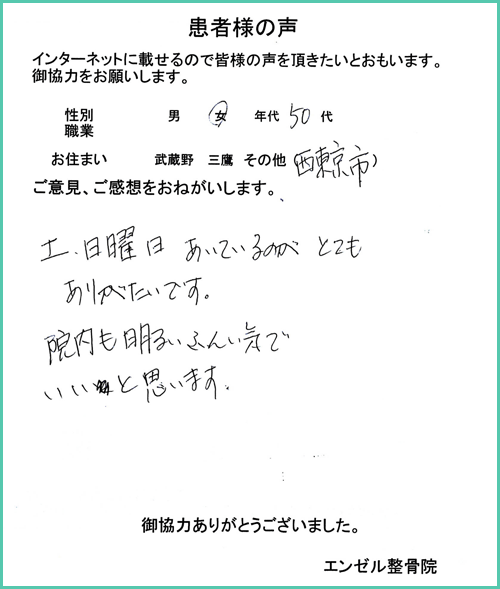 患者様の声
インターネットに載せるので皆様の声を頂きたいとおもいます。
御協力をお願いします。
性別 男 女 年代 50 代
職業
お住まい 武蔵野 三鷹 その他 (西東京市)
ご意見、ご感想をおねがいします。
土、日曜日 あいているのが とても
ありがたいです。
院内も明るいふんい気で
いいと思います。
御協力ありがとうございました。
エンゼル整骨院